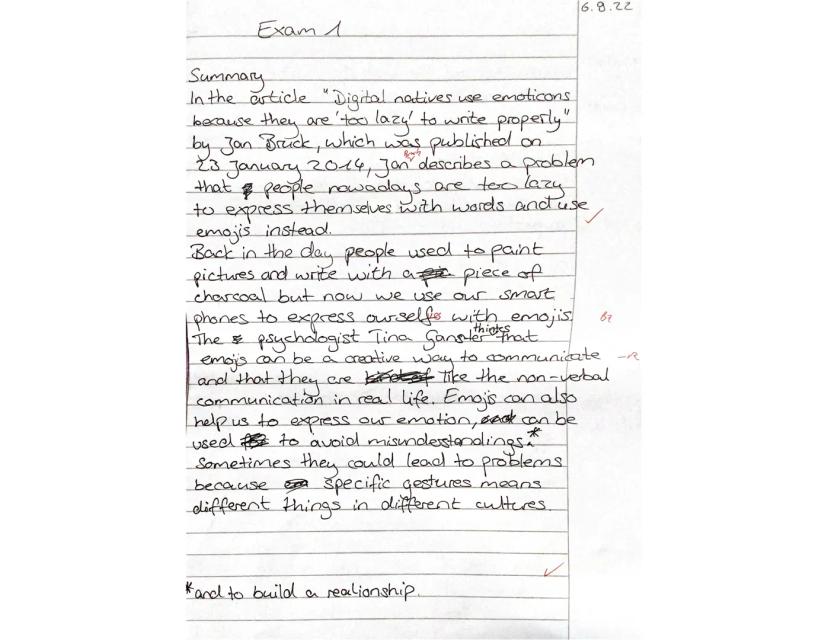 6.9.22
Exam 1
Summary
In the article "Digital natives use emoticons
because they are 'too lazy' to write properly"
by Jan Bruck, which was published on
23 January 2014, Jan describes a problem
that people nowadays are too lazy
to express themselves with words and use
emojis instead.
Back in the day people used to paint
pictures and write with a piece of
charcoal but now we use our smart
phones to express ourselfes with emojis.
The psychologist Tina Gansler thinks that
emojis can be a creative way to communicate
and that they are like the non-verbal
communication in real life. Emojis can also
help us to express our emotion, can be
used to avoid misunderstandings.*
Sometimes they could lead to problems
because specific gestures means
different things in different cultures.
*and to build a realionship.